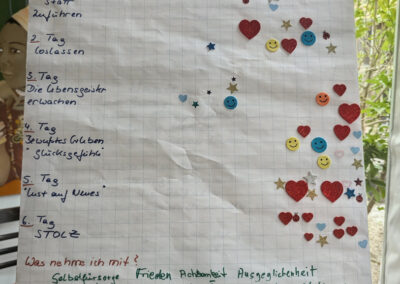 statt
zuführen
2. Tag
Loslassen
3. Tag
Die Lebensgeister
erwachen
4. Tag
Bewußtes Erleben
"Glücksgefühle"
5. Tag
"Lust auf Neues"
6. Tag
STOLZ
Was nehme ich mit?
Selbstfürsorge Frieden Achtsamkeit Ausgeglichenheit